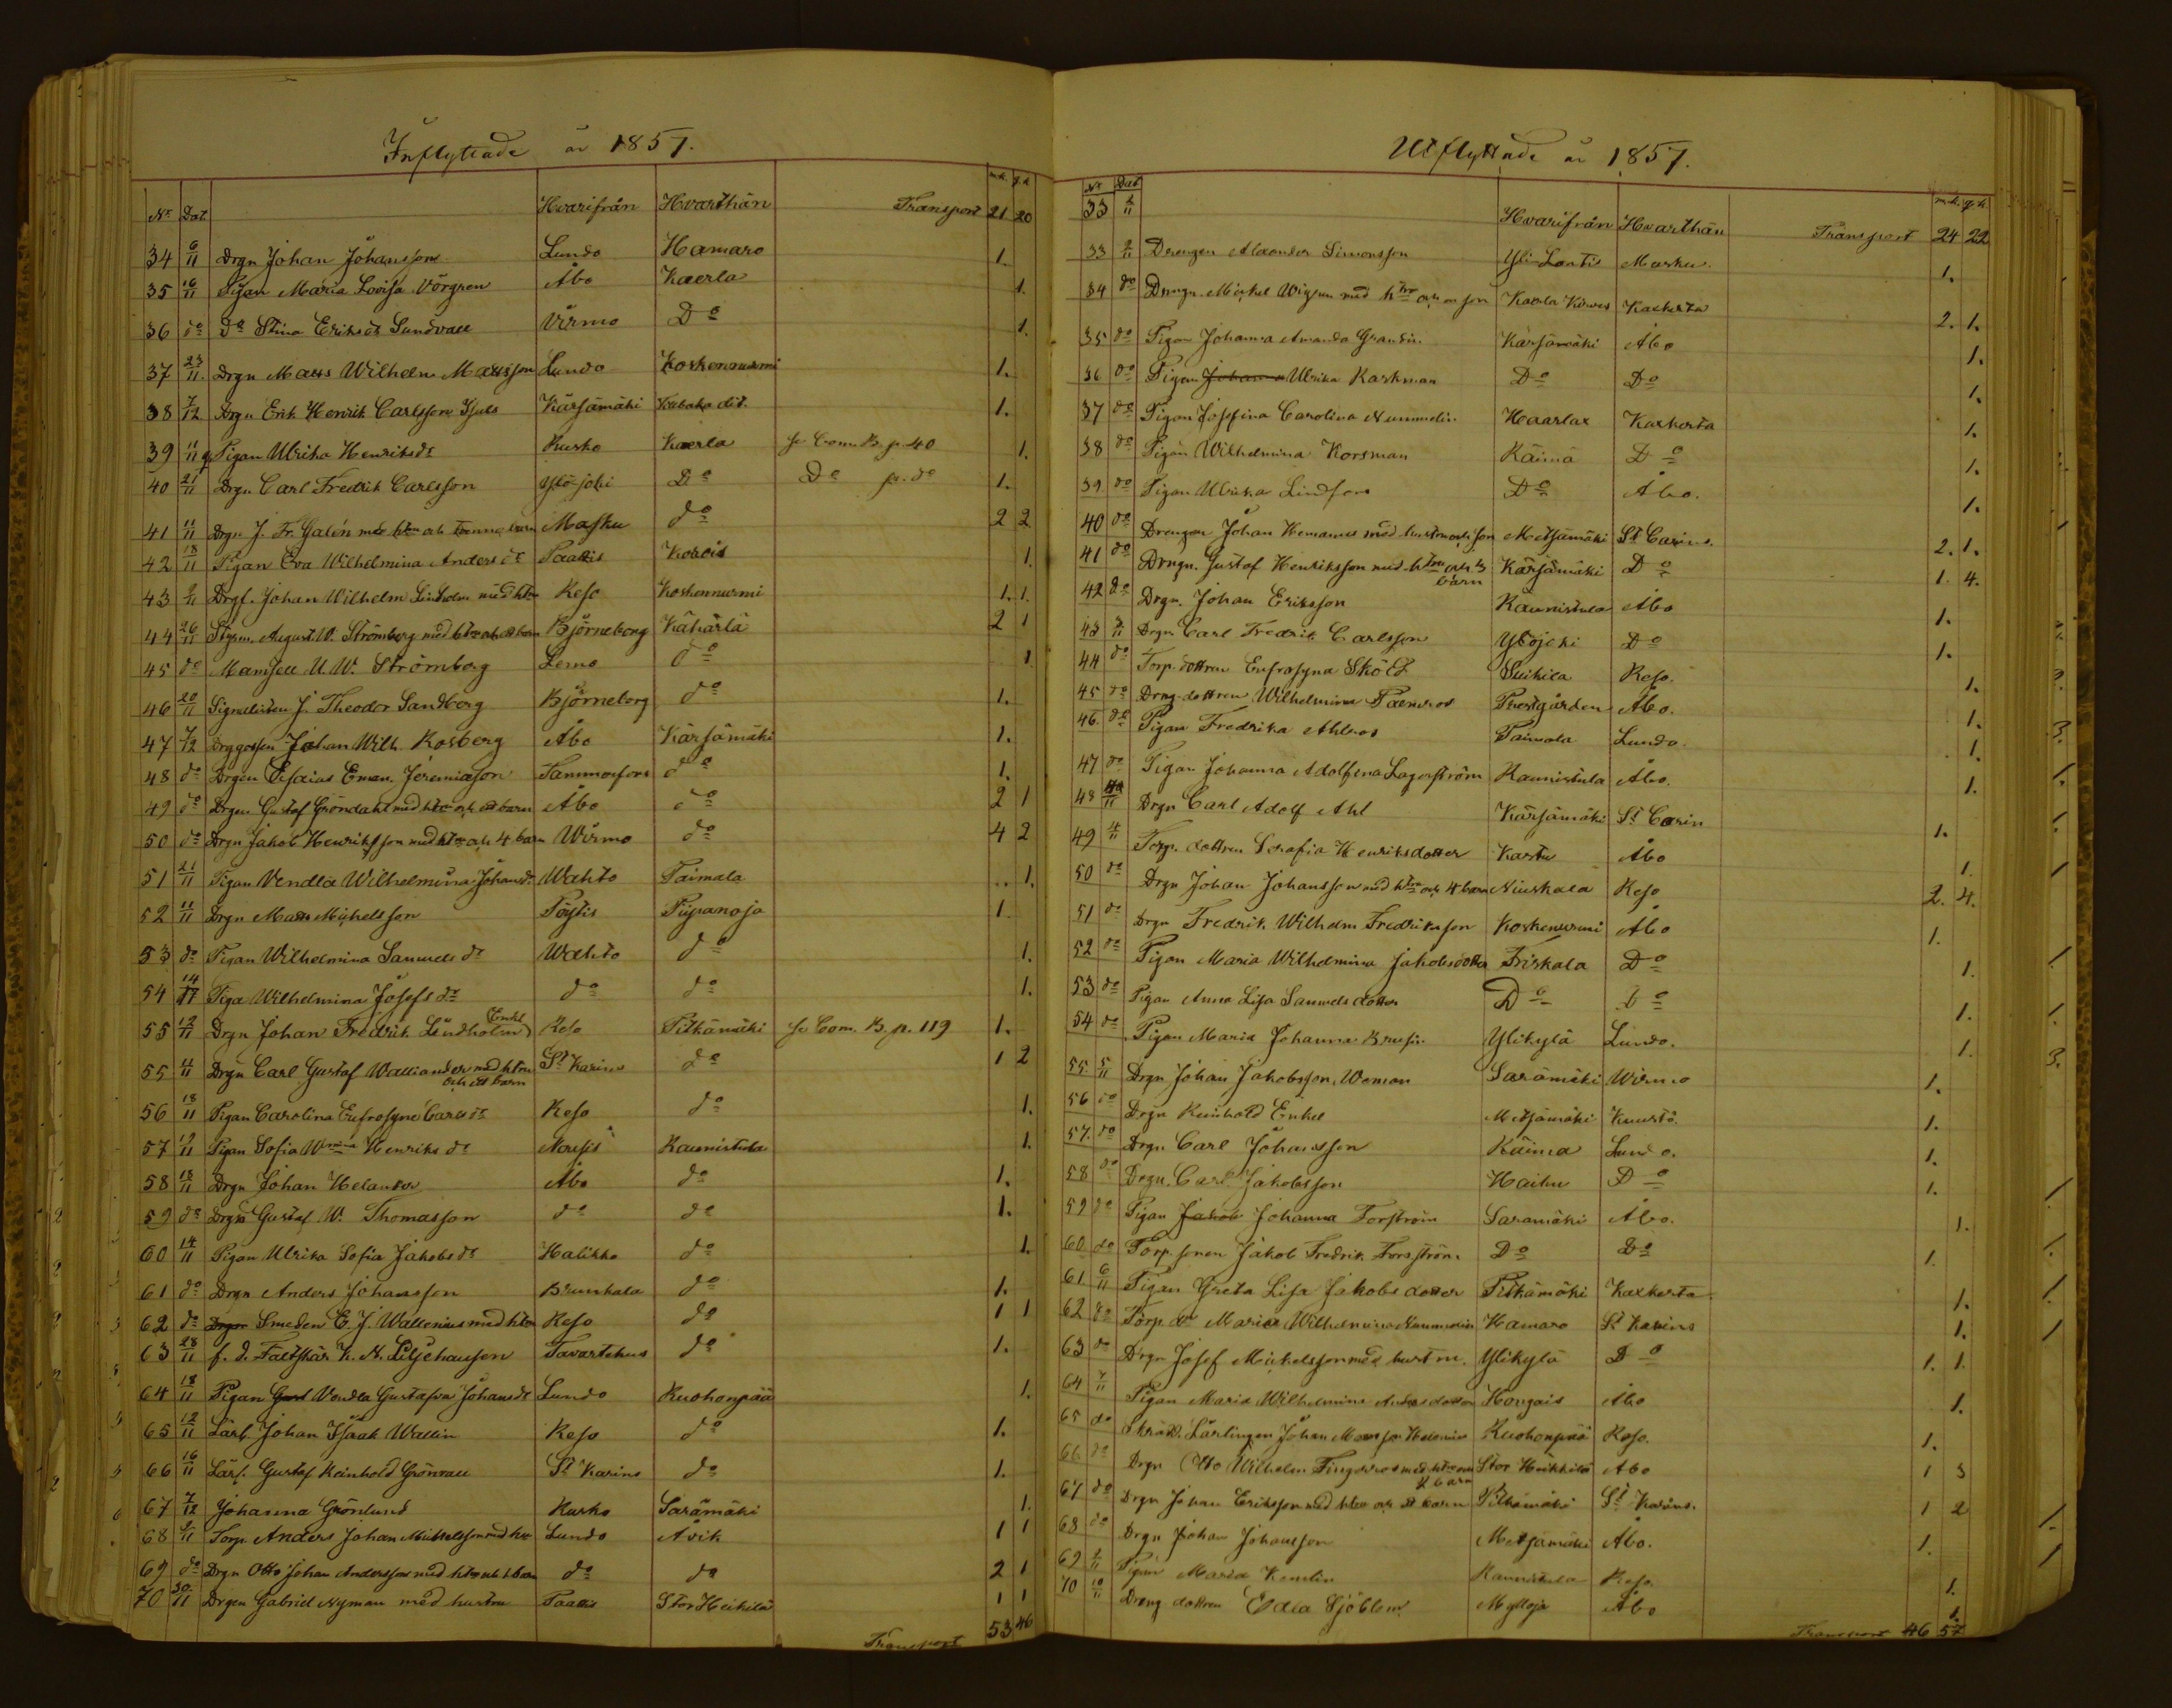 Inflyttade år 1857.
No Dat. Hvarifrån Hvarthän Transport m.k. q.k. 21 20
34 6/11 Drgn Johan Johansson Lundo Hamaro 1.
35 16/11 Pigan Maria Lovisa Vörgren Åbo Kaerla 1.
36 do do Stina Eriksdr Sundvall Virmo Do 1.
37 23/11 Drgn Matts Wilhelm Mattsson Lundo Koskennurmi 1.
38 7/12 Drgn Erik Henrik Carlsson Kärsämäki 1.
39 11/11 Pigan Ulrika Henriksdr Rusko Kaerla se Com. B. p. 40 1.
40 21/11 Drgn Carl Fredrik Carlsson Yltöjoki Do Do p. do 1.
41 11/11 Drgn J. Fr. Galén med htru och barn Masku do 2 2
42 18/11 Pigan Eva Wilhelmina Andersdr Paattis Korois 1.
43 Johan Wilhelm Lindholm med htru Reso Koskennurmi 1. 1.
44 26/11 Styrm. August W. Strömberg med htru och ett barn Björneborg Kähärlä 2 1
45 do Mamsell U. W. Strömberg Lemo do 1
46 20/11 J. Theodor Sandberg Björneborg do 1.
47 7/12 Drggossen Johan Wilh. Rosberg Åbo Kärsämäki 1.
48 do Drgen Esaias Eman. Jeremiasson Tammerfors do 1.
49 do Drgen Gustaf Gröndahl med htru och ett barn Åbo do 2 1
50 do Drgn Jakob Henriksson med htru och 4 barn Wirmo do 4 2
51 21/11 Pigan Vendla Wilhelmina Johansdr Wahto Taimala 1.
52 11/11 Drgn Matts Mickelsson Pöytis Piipanoja 1
53 do Pigan Wilhelmina Samuelsdr Wahto do 1.
54 14/11 Piga Wilhelmina Josefsdr do do 1.
55 12/11 Drgn Johan Fredrik Lindholm (Enkl) Reso Pitkämäki se Com. B. p. 119 1.
55 11/11 Drgn Carl Gustaf Walliander med htru och ett barn St Karins do 1 2
56 18/11 Pigan Carolina Eufrosyne Carlsdr Reso do 1.
57 12/11 Pigan Sofia Wmina Henriksdr Nousis Raunistula 1.
58 18/11 Drgn Johan Helander Åbo do 1.
59 do Drgn Gustaf W. Thomasson do do 1.
60 14/11 Pigan Ulrika Sofia Jakobsdr Halikko do 1.
61 do Drgn Anders Johansson Brunkala do 1.
62 do Drgn Smeden E. J. Wallenius med htru Reso do 1 1
63 28/11 f. d. Fältskär K. A. Liljehausen Tavastehus do 1.
64 18/11 Pigan Gust Vendla Gustafva Johansdr Lundo Ruohonpää 1.
65 12/11 Lärl. Johan Isaak Wallin Reso do 1.
66 16/11 Lärl. Gustaf Reinhold Grönvall St Karins do 1.
67 7/12 Johanna Grönlund Rusko Saramäki 1.
68 Torp. Anders Johan Mickelsson med htru Lundo Avik 1 1
69 do Drgn Otto Johan Andersson med htru och 1 barn do do 2 1
70 30/11 Drgen Gabriel Nyman med hustru Paattis Stor Heikilä 1 1
Transport 53 46
Utflyttade år 1857.
No Dat. Hvarifrån Hvarthän Transport m.k. q.k. 24 22
33 2/11
33 2/11 Drengen Alexander Simonsson Yli-Lonttis Masku 1.
34 do Drengn. Mickel Wigren med htru och en son Kaerla Kaxkerta 2. 1.
35 do Pigan Johanna Amanda Kärsämäki Åbo 1.
36 do Pigan Johanna Ulrika Karkman Do Do 1.
37 do Pigan Josefina Carolina Nummelin Haarlax Kaxkerta 1.
38 do Pigan Wilhelmina Korsman Räimä Do 1.
39 do Pigan Ulrika Lindfors Do Åbo. 1.
40 do Drengen Johan med hustru och son Metsämäki St Carins. 2. 1.
41 do Drengn. Gustaf Henriksson med htru och 3 barn Kärsämäki Do 1. 4.
42 do Drgn. Johan Eriksson Raunistula Åbo 1.
43 3/11 Drgn Carl Fredrik Carlsson Yltöjoki Do 1.
44 do Torp. dottren Eufrosyna Sköld Reso. 1.
45 do Dreng dottren Wilhelmina Prestgården Åbo. 1.
46. do Pigan Fredrika Ahlroos Taimola Lundo. 1.
47 do Pigan Johanna Adolfina Lagerström Raunistula Åbo. 1.
48 Drgn Carl Adolf Ahl Kärsämäki St Carin 1.
49 4/11 Torp. dottren Serafia Henriksdotter Kastu Åbo 1.
50 do Drgn Johan Johansson med htru och 4 barn Niuskala Reso 2. 4.
51 do Drgn Fredrik Wilhelm Fredriksson Koskennurmi Åbo 1.
52 do Pigan Maria Wilhelmina Jakobsdotter Friskala Do 1.
53 do Pigan Anna Lisa Samuelsdotter Do Do 1.
54 do Pigan Maria Johanna Ylikylä Lundo. 1.
55 5/11 Drgn Johan Jakobsson Saramäki Wirmo 1.
56 do Drgn Reinhold Enkel Metsämäki Kuustö. 1.
57. do Drgn. Carl Johansson Räimä Lundo. 1.
58 do Drgn. Carl Jakobsson Haihu Do 1.
59 do Pigan Jakob Johanna Forsström Saramäki Åbo. 1.
60 do Torp. sonen Jakob Fredrik Forsström Do Do 1.
61 6/11 Pigan Greta Lisa Jakobsdotter Pitkämäki Kaxkerta 1.
62 do Torp. dr Maria Wilhelmina Nummelin Hamaro St Karins 1.
63 do Drgn Josef Mickelsson med hustru. Ylikylä Do 1. 1.
64 7/11 Pigan Maria Wilhelmina Andersdotter Hongais Åbo 1.
65 do Skrädd. Lärlingen Johan Ruohonpää Reso. 1.
66 do Drgn Otto Wilhelm Tingroos med htru och 2 barn Stor Heikkilä Åbo 1 3
67 do Drgn Johan Eriksson med htru och ett barn Pitkämäki St Karins. 1 2
68 do Drgn Johan Johansson Metsämäki Åbo. 1.
69 Pigan Maria Kemlin Raunistula Reso. 1.
70 10/11 Dreng dottren Edla Sjöblom Mylloja Åbo 1.
Transport 46 57